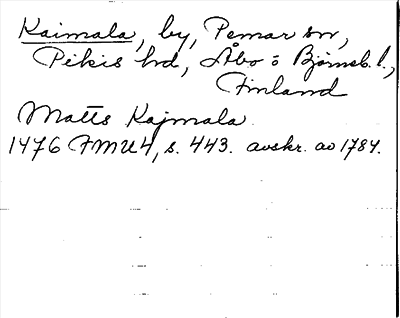 Kaimala, by, Pemar sn,
Pikis hd, Åbo o Björneb. l.,
Finland
Matts Kajmala
1476 FMU4, s. 443. avskr. av 1784.